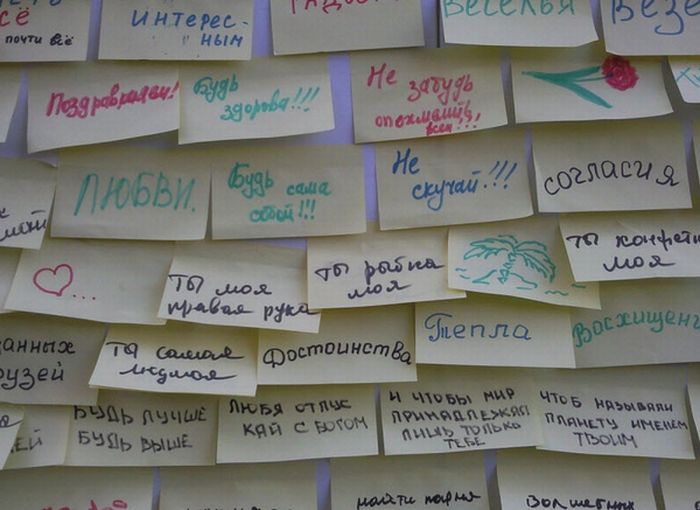 всё
почти всё
ИНТЕРЕС-
НЫМ
ВЕСЕЛЬЯ
ВЕЗЕ
Поздравляем!
Будь
здорова!!!
Не
забудь
опохмелить
всех!!!
ЛЮБВИ.
Будь сама
собой!!!
Не
скучай!!!
СОГЛАСИЯ
...
ТЫ МОЯ
правая рука
ТЫ рыбка
моя
ТЫ конфетка
моя
данных
рузей
ТЫ самая
людмая
Достоинства
Тепла
Восхищен
ей
БУДЬ ЛУЧШЕ
БУДЬ ВЫШЕ
ЛЮБЯ ОТПУС
КАЙ С БОГОМ
И ЧТОБЫ МИР
ПРИНАДЛЕЖАЛ
ЛИШЬ ТОЛЬКО
ТЕБЕ
ЧТОБ НАЗЫВАЛИ
ПЛАНЕТУ ИМЕНЕМ
ТВОИМ
найти парня
волшебных